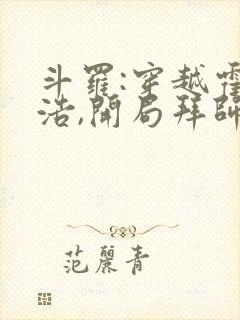 斗羅:穿越霍
浩,開局拜師
范麗青